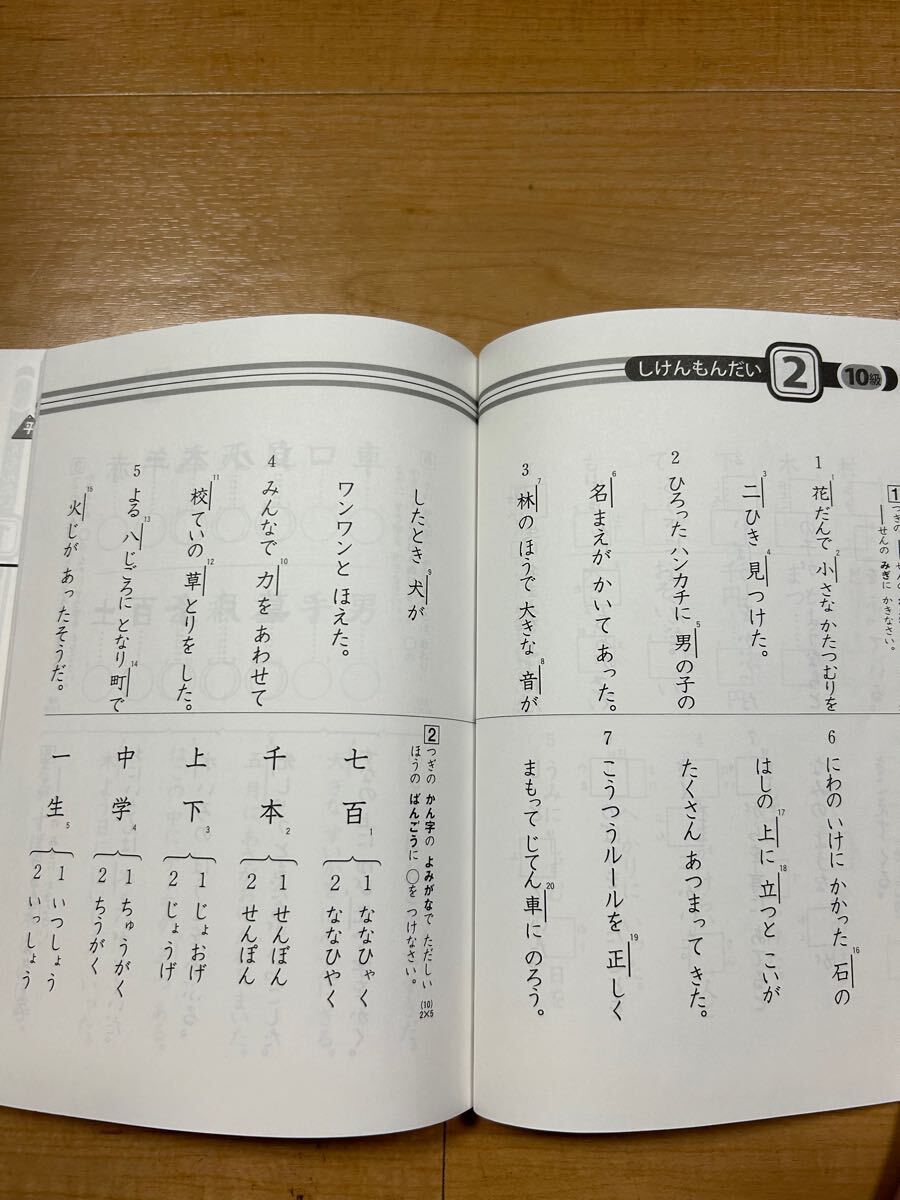 しけんもんだい 2 10級
1
つぎの
せんの みぎに かきなさい。
1 花だんで 小さな かたつむりを
二ひき 見つけた。
2 ひろった ハンカチに 男の子の
名まえが かいて あった。
3 林の ほうで 大きな 音が
したとき 犬が
ワンワンと ほえた。
4 みんなで 力を あわせて
校ていの 草とりを した。
5 よる 八じごろに となり町で
火じが あったそうだ。
6 にわの いけに かかった 石の
はしの 上に 立つと こいが
たくさん あつまって きた。
7 こうつうルールを 正しく
まもって じてん車に のろう。
2 つぎの かん字の よみがなで ただしい
ほうの ばんごうに ○を つけなさい。 (10) 2×5
七百 1
1 ななひゃく
2 ななひやく
千本 2
1 せんぼん
2 せんぽん
上下 3
1 じょおげ
2 じょうげ
中学 4
1 ちゅうがく
2 ちうがく
一生 5
1 いつしょう
2 いっしょう